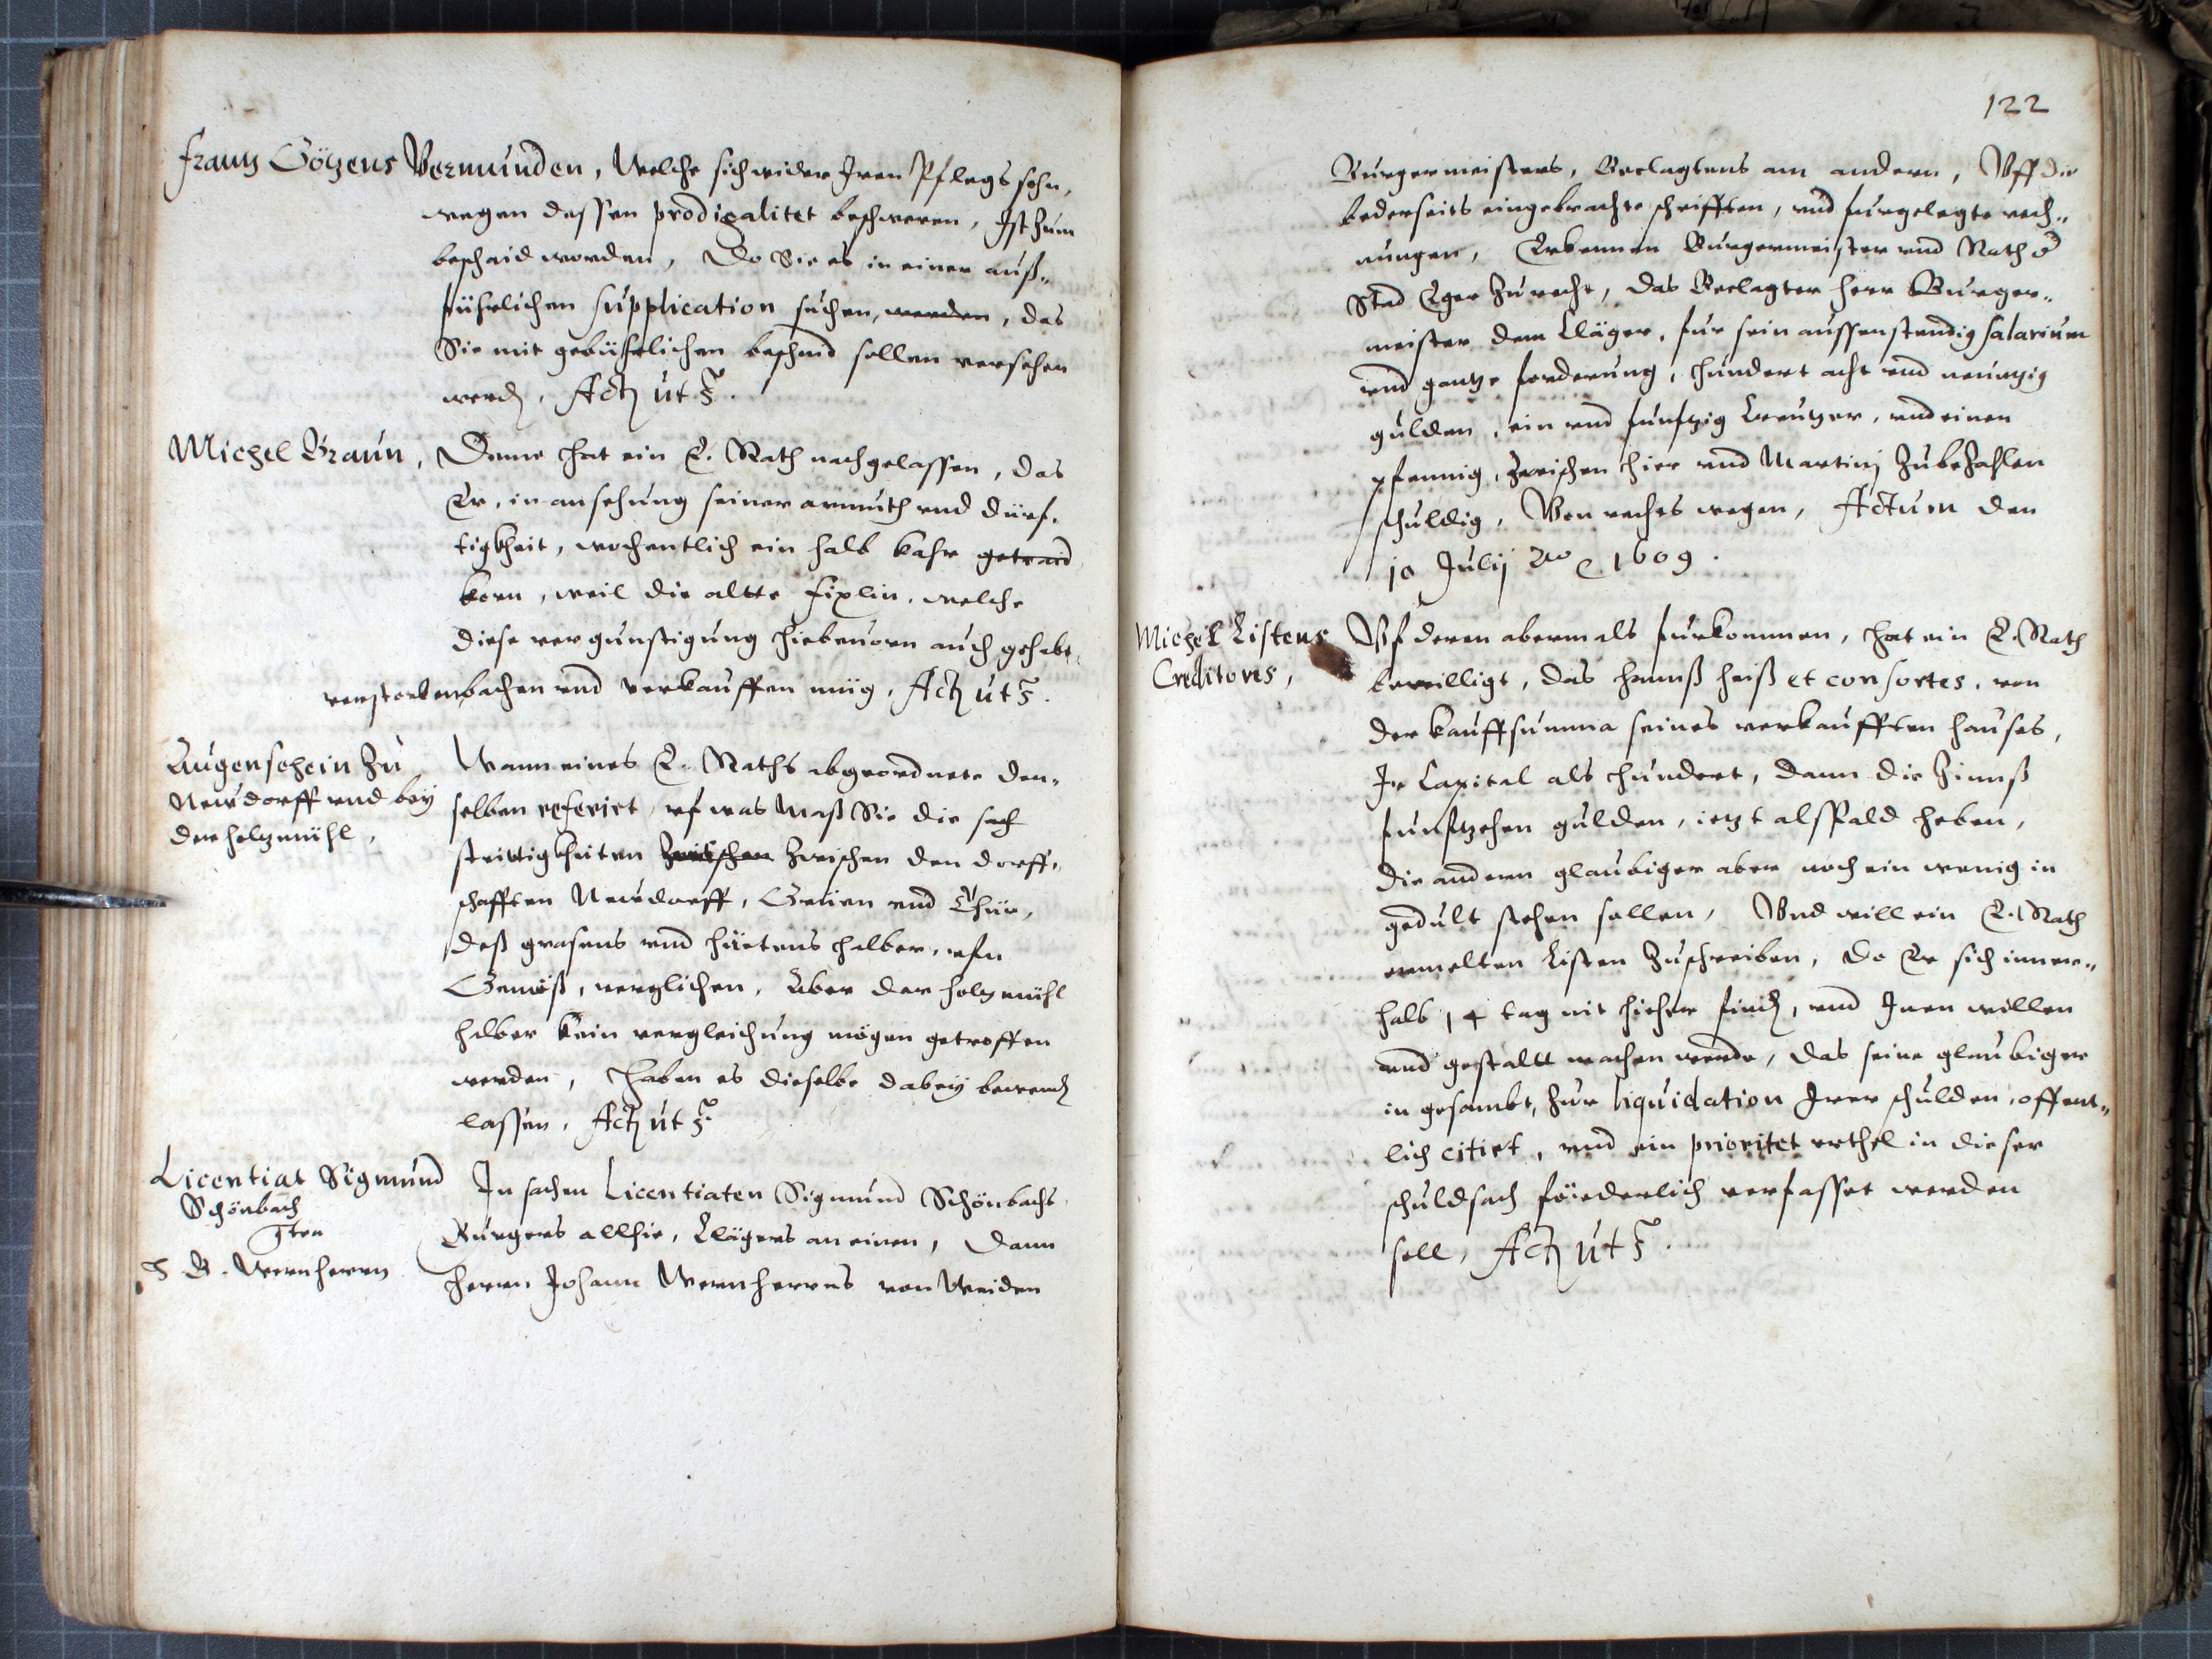 Frantz Götzens Vormunden, Welche sich wider Iren Pflegs sohn,
wegen dessen prodigalitet beschweren, Ist zum
beschaid worden, Do Sie es in einer auß„
führlichen supplication suchen, werden, das
Sie mit gebürlichen beschaid sollen versehen
werdn, Actum ut supra.
Michel Braun, Deme hat ein E. Rath nachgelassen, das
Er, in ansehung seiner armuth vnd dürf„
tigkheit, wochentlich ein halb kahr getraid
korn, weil die altte Fixlin, welche
diese vergunstigung hiebeuorn auch gehabt,
verstorben, bachen vnd verkauffen müg, Actum ut supra.
Augenschein zu
Newdorff vnd bey
der holtzmühl,
Wann eines E. Raths abgeordnete den„
selben referirt, vf was Maß Sie die sach
strittigkheiten zwischen zwischen den dorff„
schafften Newdorff, Grüen vnd Thür,
deß grasens vnd hüetens halber, vfn
Gemöß, verglichen, Aber der holtzmühl
halber kein vergleichung mögen getroffen
werden, Haben es dieselbe dabey bewendn
lassen, Actum ut supra.
Licentiat Sigmund
Schönbach
gten
H. B. Wernherrn
In sachen Licentiaten Sigmund Schönbachs
Burgers allhie, Clägers an einen, Dann
Herrn Johann Wernherrns von Weiden
122
Burgermeisters, Beclagtens am andern, Vff die
bederseits eingebrachte schrifften, vnd furgelegte rech„
nungen, Erkennen Burgermeister vnd Rath d
Stad Eger zu recht, das Beclagter Herr Burger„
meister dem Cläger, fur sein aussenstendig salarium
vnd gantze forderung, Hundert acht vnd neuntzig
gulden, ein vnd funftzig Creutzer, vnd einen
pfennig, zwischen hier vnd Martinj zubezahlen
schuldig, Von rechts wegen, Actum den
10 Julij Ao 1609.
Michel Listens
Creditores,
Vf deren abermals furkommen, hat ein E. Rath
bewilligt, das Hannß Heiß et consortes, von
der kauffsumma seines verkaufften hauses,
Ir Capital als hundert, dann die Zinnß
funftzehen gulden, ietzt alspald heben,
die andern glaubiger aber noch ein wenig in
gedult stehen sollen, Vnd will ein E. Rath
ermelten Listen zuschreiben, do Er sich inner„
halb 14 tag nit hieher findn, vnd Inen willen
vnd gestaltt machen werde, das seine glaubiger
in gesambt, zur liquidation Irer schulden, offent„
lich citirt, vnd ein prioritet vrthel in dieser
schuldsach förderlich verfasset werden
soll, Actum ut supra.